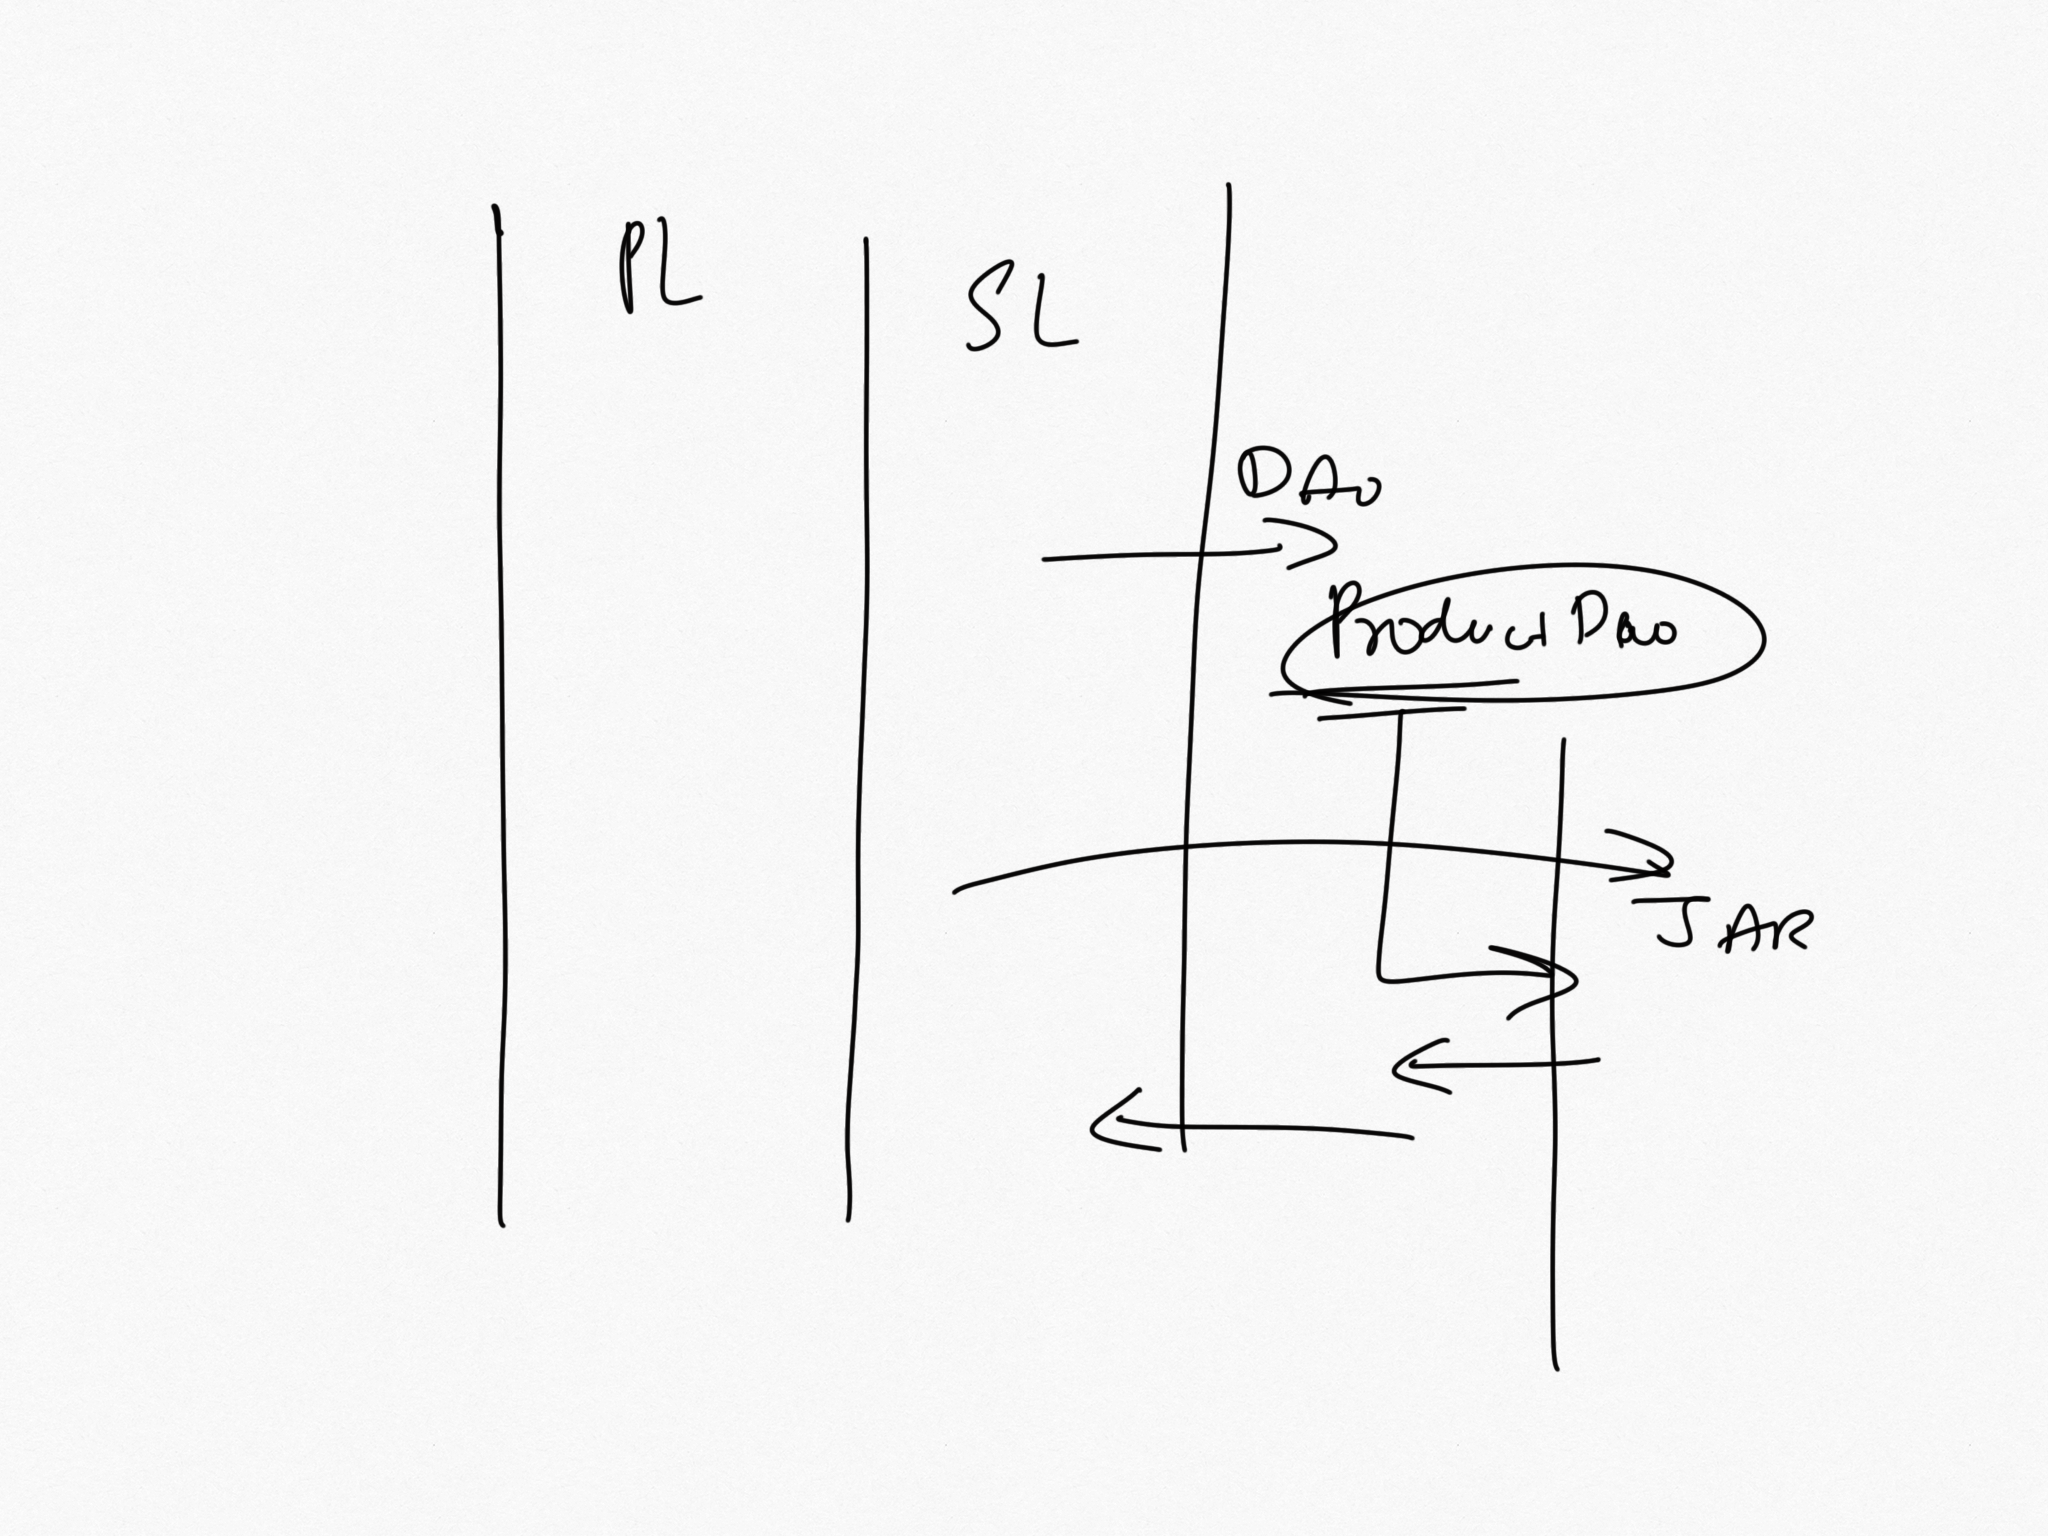 PL
SL
DAO
ProductDao
JAR